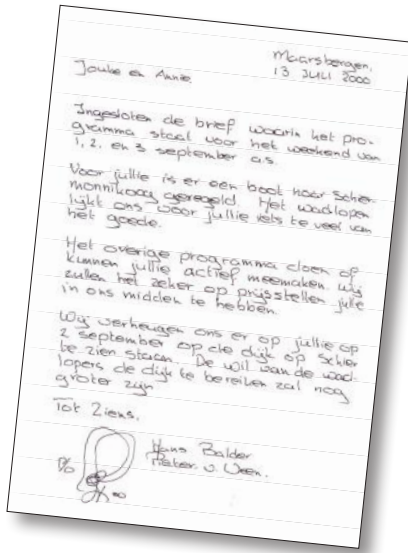 Maarsbergen,
13 JULI 2000
Jouke en Annie.
Ingesloten de brief waarin het pro-
gramma staat voor het weekend van
1, 2, en 3 september a.s.
Voor jullie is er een boot naar Schier
monnikoog geregeld. Het wadlopen
lijkt ons voor jullie iets te veel van
het goede.
Het overige programma doen of
kunnen jullie actief meemaken. Wij
zullen het zeker op prijsstellen julie
in ons midden te hebben.
Wij verheugen ons er op jullie op
2 september op de dijk op Schier
te zien staan. De wil van de wad-
lopers de dijk te bereiken zal nog
groter zijn
Tot Ziens.
Hans Balder
Pieter v. Veen.
P/o